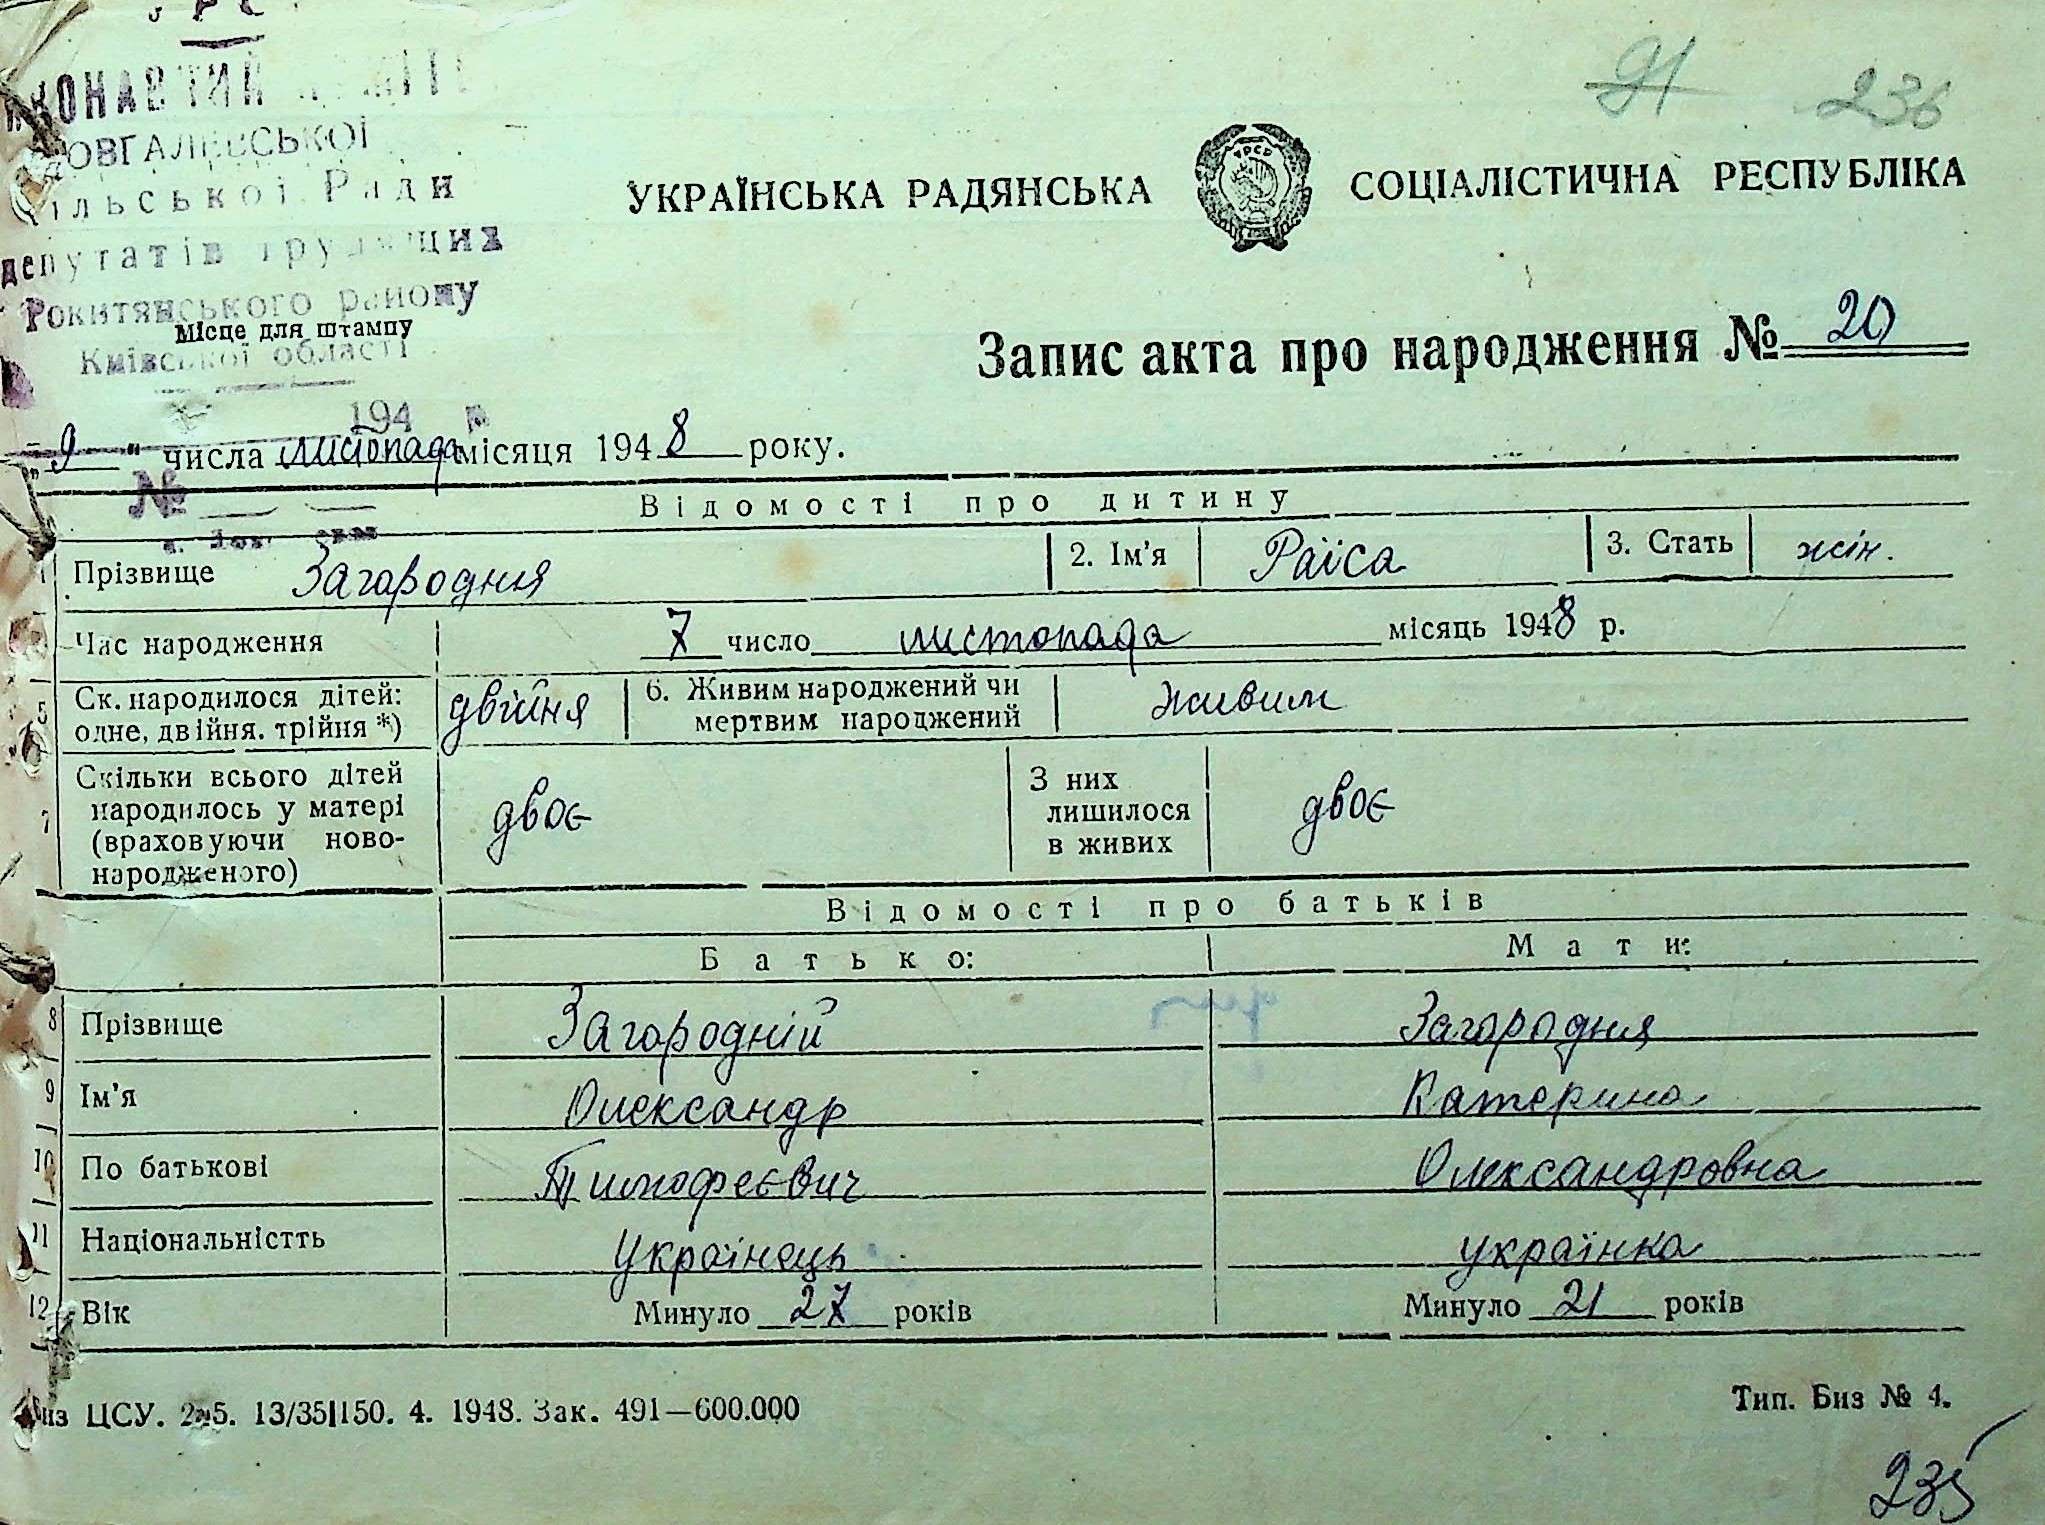 91 236
ОВГАЛЕВСЬКОЇ
Ради
депутатів трудящих
Рокитянського району
Місце для штампу
Київської області
194 р.
№
УКРАЇНСЬКА РАДЯНСЬКА СОЦІАЛІСТИЧНА РЕСПУБЛІКА
Запис акта про народження № 20
„9“ числа листопада місяця 1948 року.
Відомості про дитину
1 Прізвище Загородня 2. Ім'я Раїса 3. Стать жін.
Час народження 7 число листопада місяць 1948 р.
5 Ск. народилося дітей: двійня 6. Живим народжений чи живим
одне, двійня. трійня *) мертвим народжений
7 Скільки всього дітей двоє З них двоє
народилось у матері лишилося
(враховуючи ново- в живих
народженого)
Відомості про батьків
Батько: Мати:
8 Прізвище Загородній Загородня
9 Ім'я Олександр Катерина
10 По батькові Тимофеєвич Олександровна
11 Національністть Українець українка
12 Вік Минуло 27 років Минуло 21 років
ЦСУ. 13/35|150. 4. 1948. Зак. 491—600.000 Тип. Биз № 4.
235